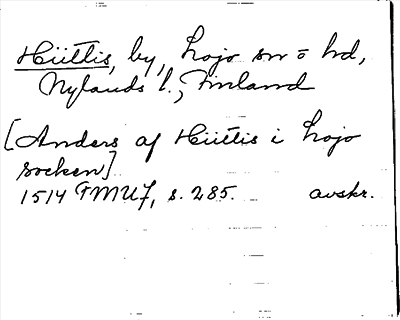 Hiittis, by, Lojo sn o hd,
Nylands l., Finland
[Anders af Hiittis i Lojo
socken]
1514 FMU 7, s. 285. avskr.